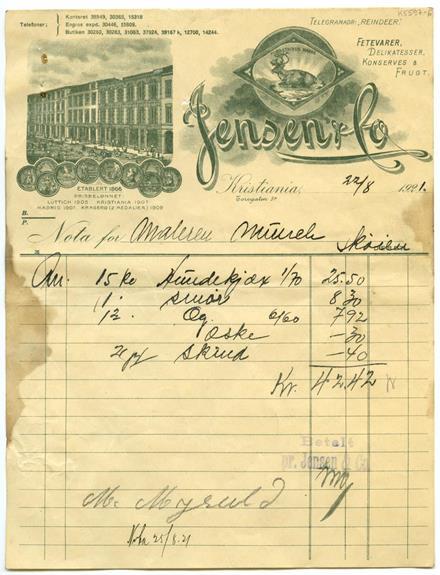 K5594-b
Telefoner: Kontoret 39849, 30363, 15318
Engros exped. 30446, 51509.
Butiken 30260, 30263, 31063, 37924, 39167 k, 12700, 14244.
TELEGRAMADR: „REINDEER".
FETEVARER,
DELIKATESSER,
KONSERVES &
FRUGT.
Jensen & Co
ETABLERT 1866
PRISBELØNNET
LÜTTICH 1905 KRISTIANIA 1907
MADRID 1907. KRAGERØ (2 MEDALIER) 1909
Kristiania, 22/8 1921.
Torvgaten 3
B.
P.
Nota for Maleren Munch
An. 15 ko Hundekjæx 1/70 25.50
1 " smør 8 30
12 Eg 6/60 7 92
æske - 30
- 40
Kr. 42.42
Betalt
pr. Jensen & Co.
25/8.21